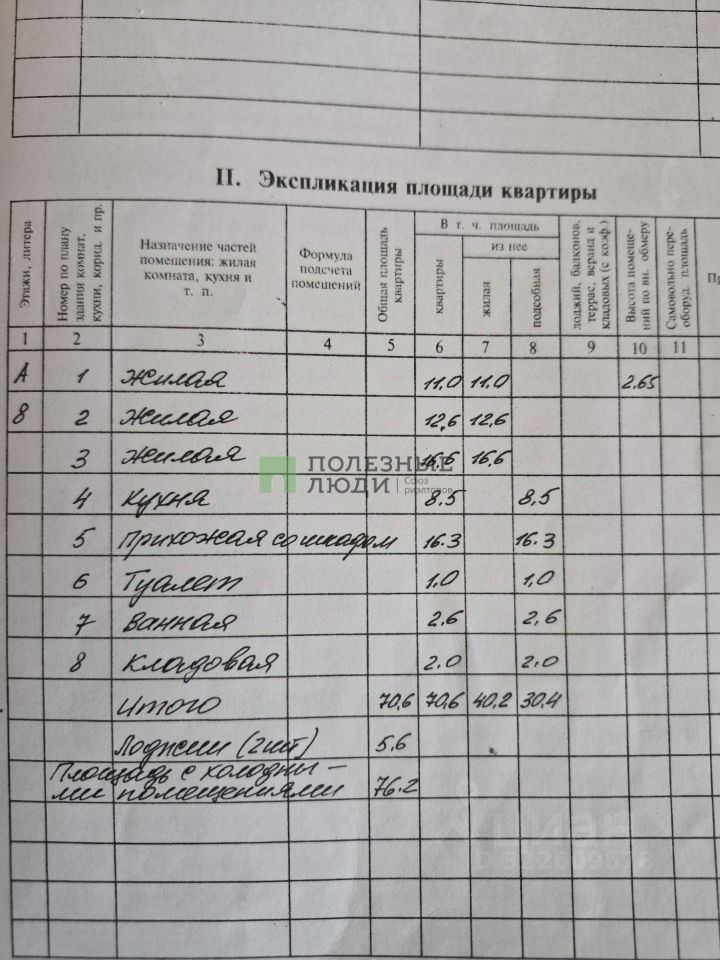 II. Экспликация площади квартиры
Этажи, литера
Номер по плану здания комнат, кухни, корид. и пр.
Назначение частей помещения: жилая комната, кухня и т. п.
Формула подсчета помещений
Общая площадь квартиры
В т. ч. площадь
из нее
квартиры
жилая
подсобная
лоджий, балконов, террас, веранд и кладовых (с коэф.)
Высота помещений по вн. обмеру
Самовольно переоборуд. площадь
1 2 3 4 5 6 7 8 9 10 11
А 1 Жилая 11.0 11.0 2.65
8 2 Жилая 12,6 12,6
3 Жилая 16,6 16,6
4 Кухня 8.5 8,5
5 Прихожая со шкафом 16.3 16.3
6 Туалет 1,0 1,0
7 Ванная 2.6 2,6
8 Кладовая 2.0 2.0
Итого 70,6 70,6 40,2 30.4
Лоджии (2шт) 5,6
Площадь с холодны-
ми помещениями 76.2
ПОЛЕЗНЫЕ
ЛЮДИ Союз риэлторов